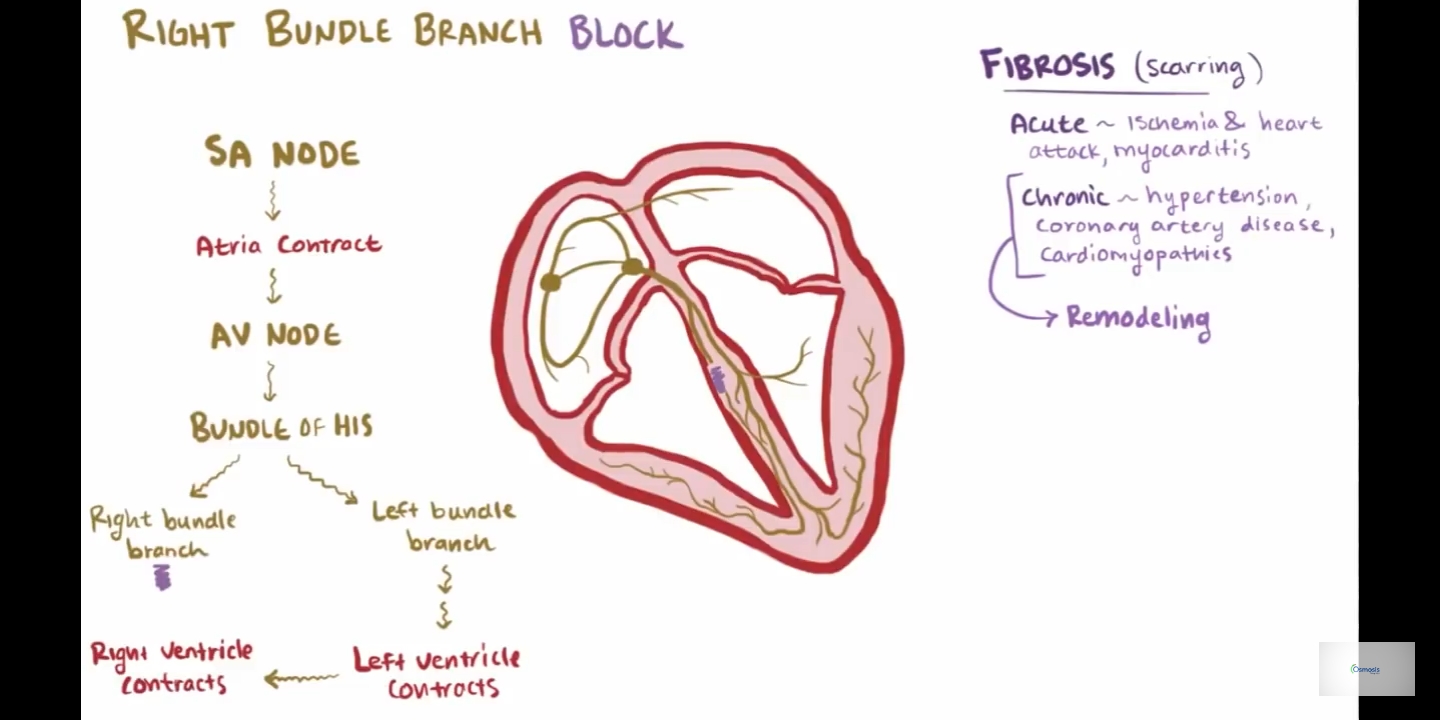 RIGHT BUNDLE BRANCH BLOCK
SA NODE
Atria Contract
AV NODE
BUNDLE OF HIS
Right bundle
branch
Left bundle
branch
Right ventricle
contracts
Left ventricle
contracts
FIBROSIS (scarring)
Acute ~ Ischemia & heart
attack, myocarditis
Chronic ~ hypertension,
coronary artery disease,
cardiomyopathies
Remodeling
Osmosis